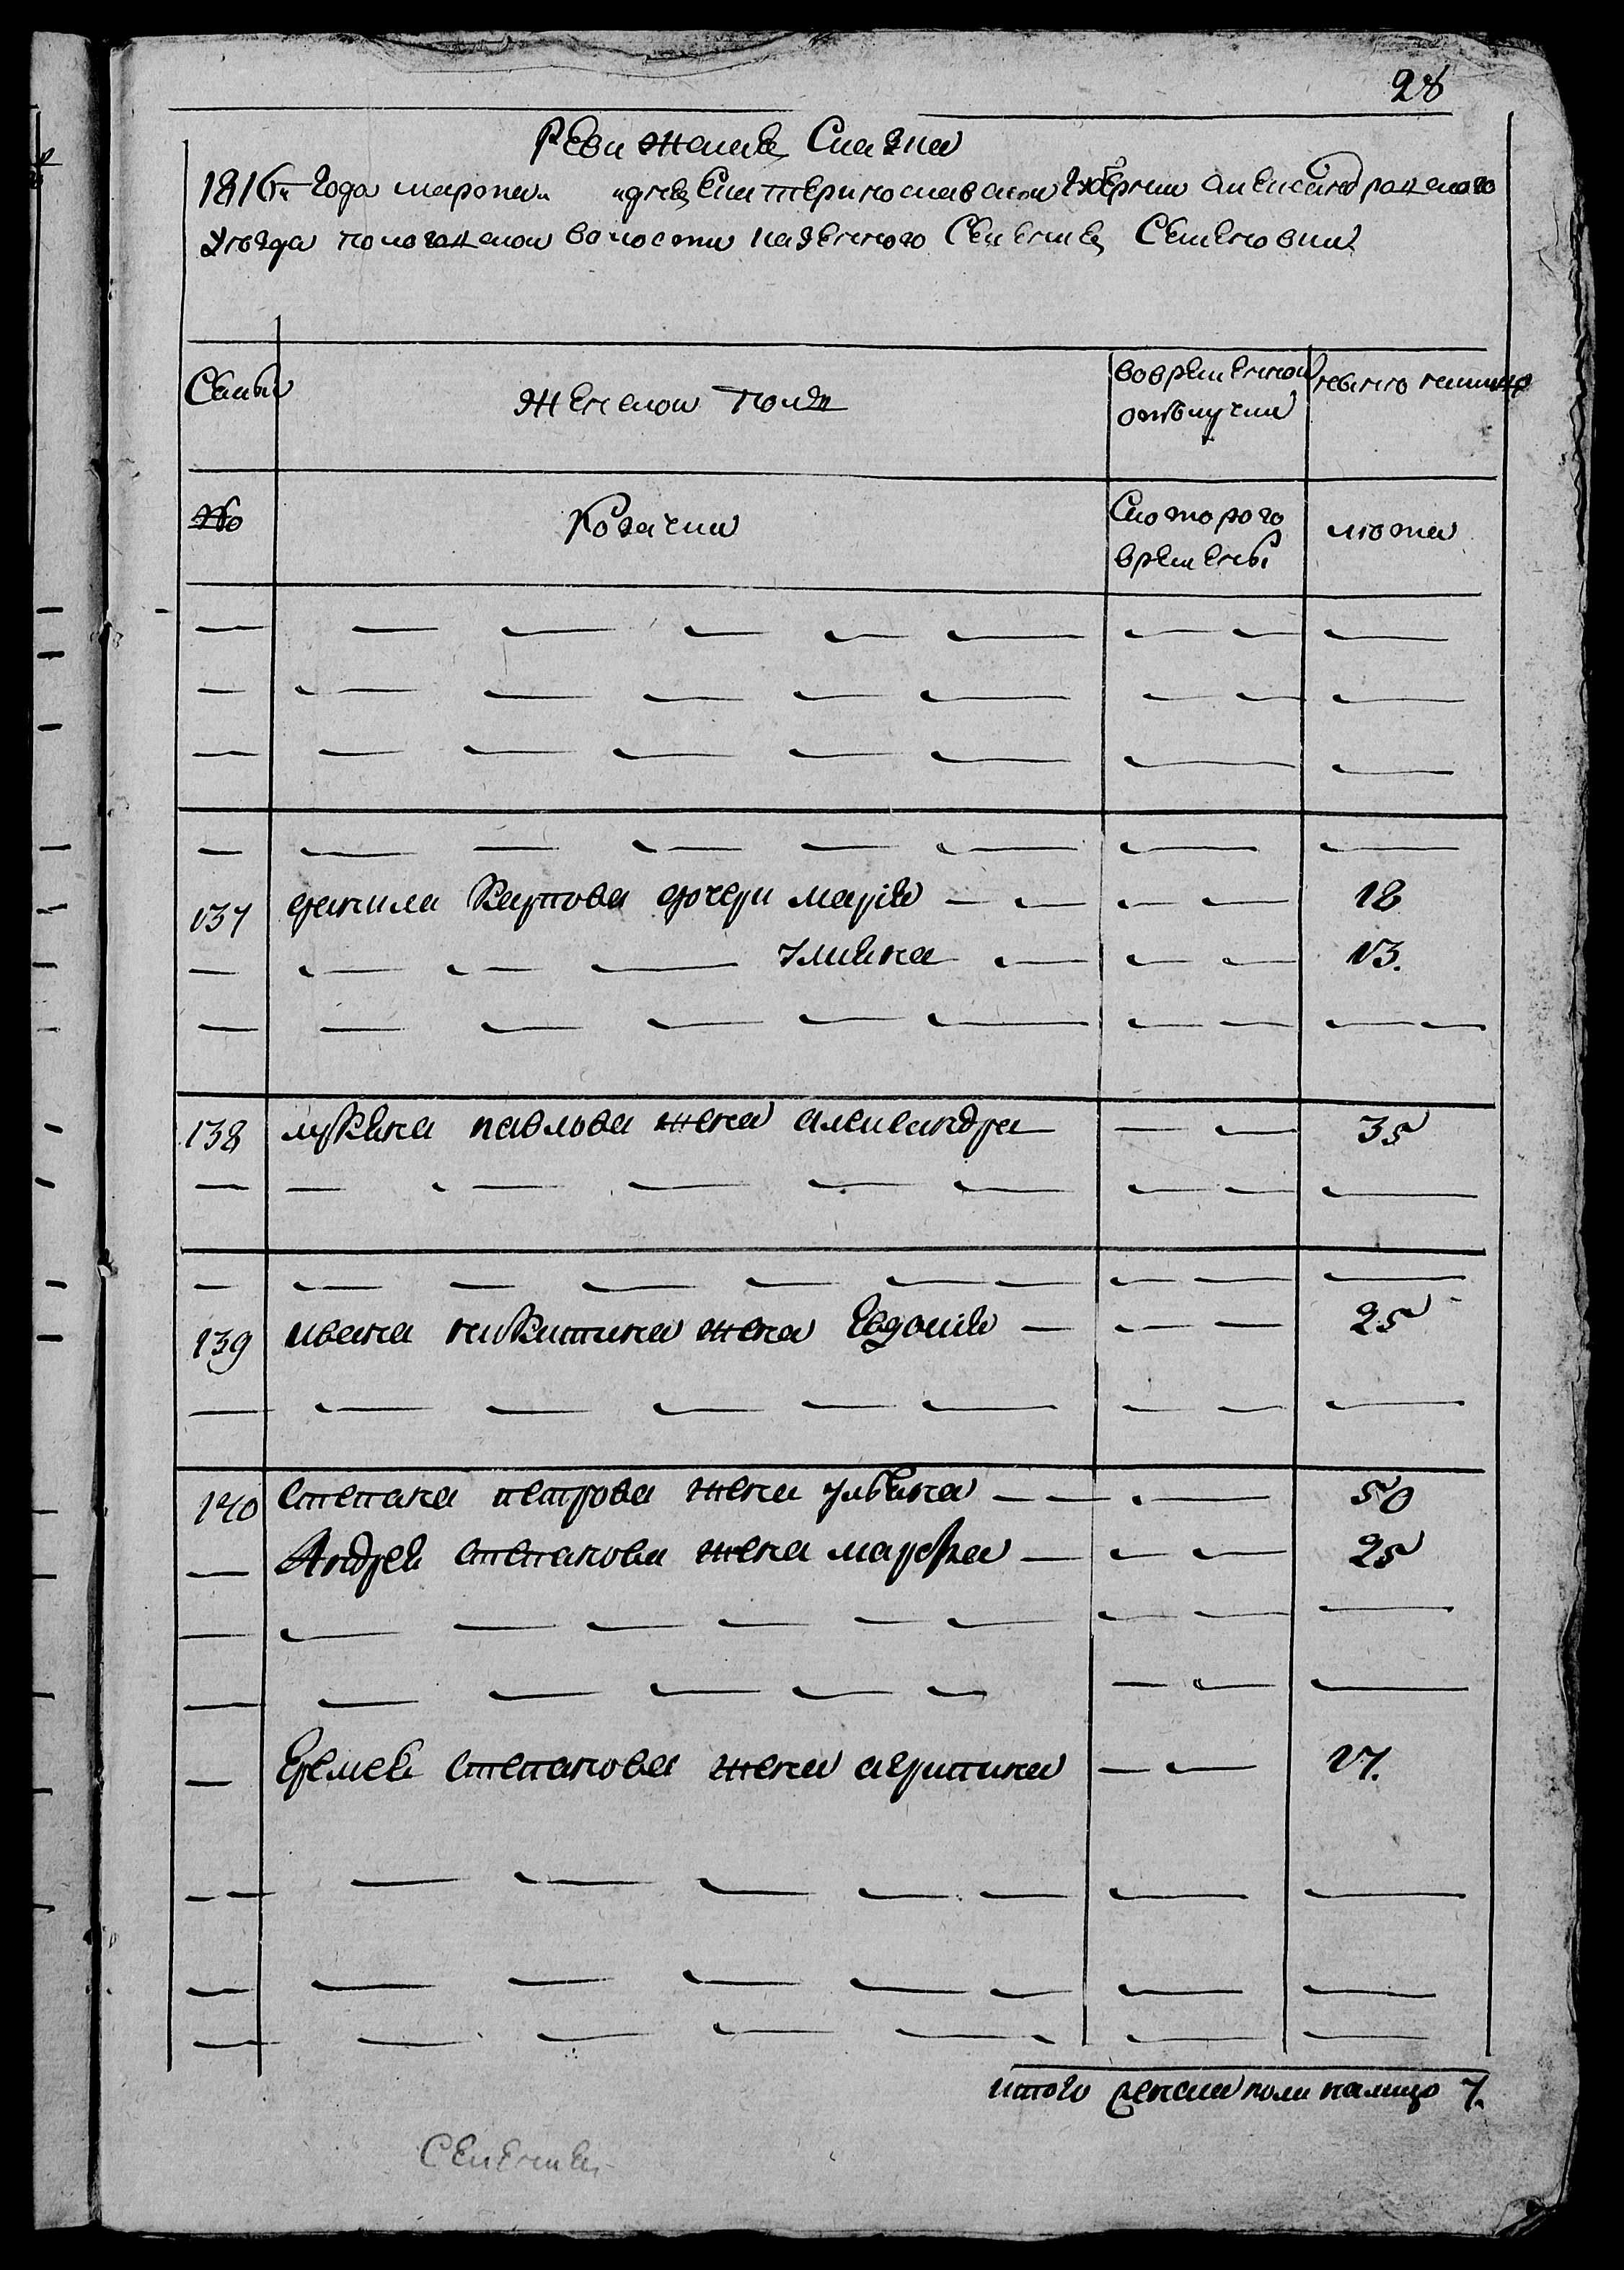 28
Ревижская Сказка
1816го года марта дня Екатеринославской Губернии Александровского
Уезда Пологской волости казенного Селения Семеновки
Семьи
Женской Пол
вовременной отлучки
ныне налицо
№
Козачки
С которого времены
лета
137 данила Карпова дочери марія 18
Улияна 13.
138 лукяна павлова жена александра 35
139 ивана никитина жена Евдокия 25
140 степана петрова жена ульяна 50
Андрея степанова жена марфа 25
Еремея степанова жена агрипина 17.
итого женска пола налицо 7.
Селения